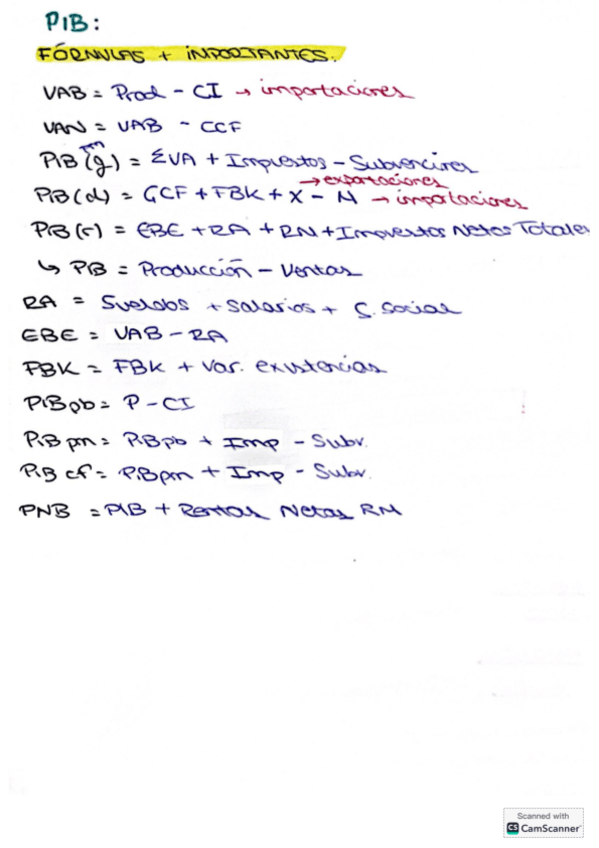 PIB:
FÓRMULAS + IMPORTANTES.
VAB = Prod - CI → importaciones
VAN = VAB - CCF
PIB (g) = ΣVA + Impuestos - Subvenciones
pm
→ exportaciones
PIB (d) = GCF + FBK + X - M → importaciones
PIB (r) = EBE + RA + RN + Impuestos Netos Totales
↳ PIB = Producción - Ventas
RA = Sueldos + Salarios + C. social
EBE = VAB - RA
FBK = FBK + Var. existencias
PIBpb = P - CI
PIB pm = PIBpb + Imp - Subv.
PIB cf = PIBpm + Imp - Subv.
PNB = PIB + Rentas Netas RM
Scanned with
CS CamScanner